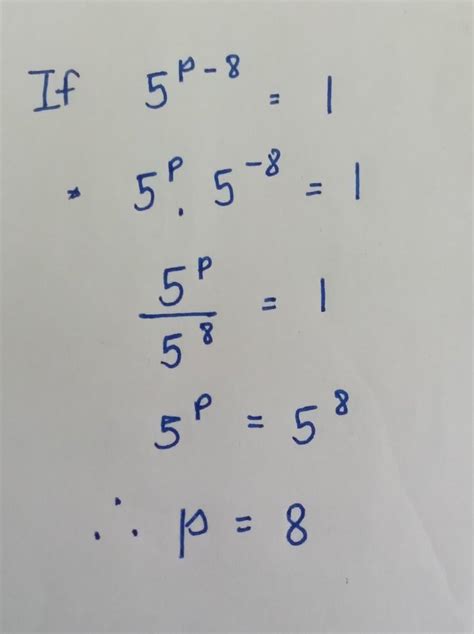 If 5^{p-8} = 1
* 5^p . 5^{-8} = 1
5^p / 5^8 = 1
5^p = 5^8
∴ p = 8